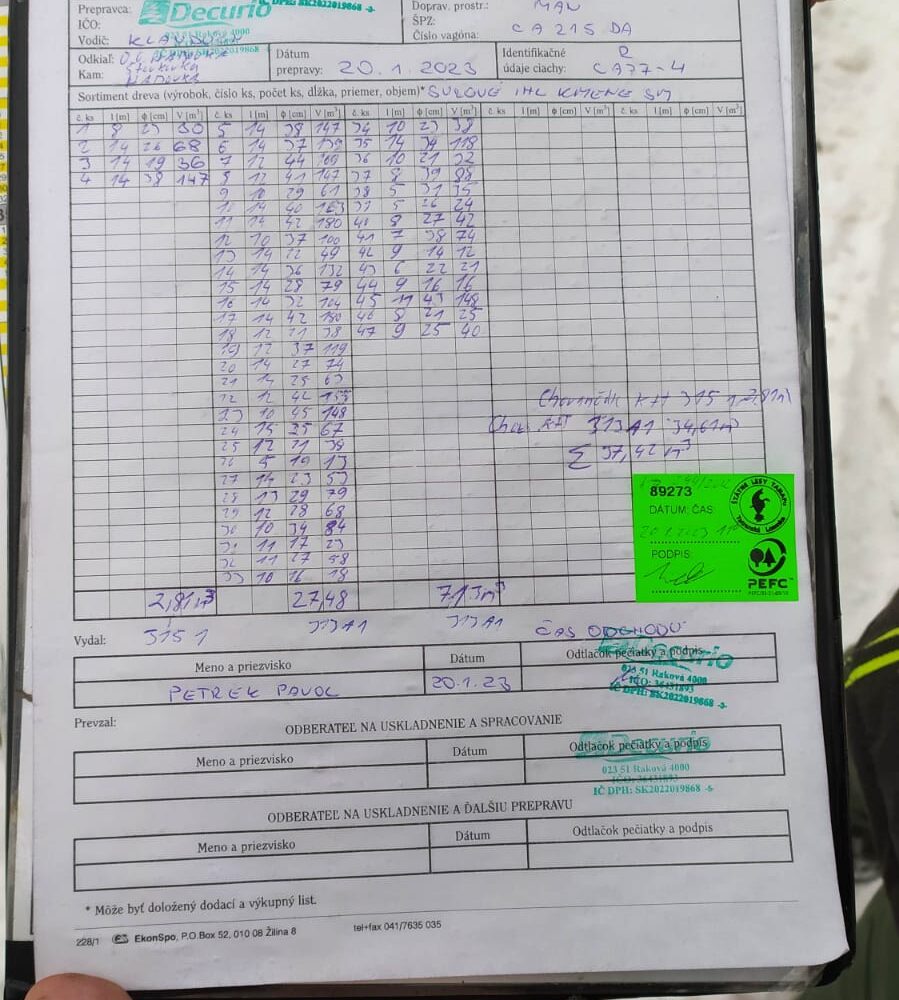 Prepravca: Decurio IČ DPH: SK2022019868 -5-
IČO: 023 51 Raková 4000
Vodič:
Doprav. prostr.: MAN
ŠPZ:
Číslo vagóna: CA 215 DA
Odkiaľ:
Kam:
Dátum
prepravy: 20.1.2023
Identifikačné
údaje ciachy: CA77-4
Sortiment dreva (výrobok, číslo ks, počet ks, dĺžka, priemer, objem)* SUROVÉ IHL KMENE SM
č. ks l [m] ϕ [cm] V [m³] č. ks l [m] ϕ [cm] V [m³] č. ks l [m] ϕ [cm] V [m³] č. ks l [m] ϕ [cm] V [m³] č. ks l [m] ϕ [cm] V [m³]
1 8 23 30 5 14 38 147 34 10 23 38
2 14 26 68 6 14 37 139 35 14 34 118
3 14 19 36 7 12 44 36 10 21 32
4 14 38 147 8 12 41 147 37 8 39 88
9 10 29 61 38 5 31 35
10 14 40 163 39 5 26 24
11 14 42 180 40 8 27 42
12 10 37 100 41 7 38 74
13 14 22 49 42 9 14 12
14 14 36 132 43 6 22 21
15 14 28 79 44 9 16 16
16 14 32 104 45 11 43 148
17 14 42 180 46 8 21 25
18 12 21 38 47 9 25 40
19 12 37 119
20 14 27 74
21 14 25 63
22 12 42 153
23 10 45 148
24 15 25 67
25 12 21 38
26 5 19 13
27 14 23 53
28 13 29 79
29 12 28 68
30 10 34 84
31 11 17 23
32 11 27 58
33 10 16 18
KH 315 1 2,81m³
313A1 34,61m³
Σ 37,42 m³
89273
DÁTUM, ČAS:
20.1.2023
PODPIS
ŠTÁTNE LESY TANAPu
Tatranská Lomnica
PEFC™
2,81m³ 27,48 7,13m³
315 1 313A1 313A1
Vydal: ČAS ODCHODU:
Meno a priezvisko Dátum Odtlačok pečiatky a podpis
PETREK PAVOL 20.1.23
Decurio
023 51 Raková 4000
IČO: 36431893
IČ DPH: SK2022019868 -5-
Prevzal: ODBERATEĽ NA USKLADNENIE A SPRACOVANIE
Meno a priezvisko Dátum Odtlačok pečiatky a podpis
Decurio
023 51 Raková 4000
IČO: 36431893
IČ DPH: SK2022019868 -5-
ODBERATEĽ NA USKLADNENIE A ĎALŠIU PREPRAVU
Meno a priezvisko Dátum Odtlačok pečiatky a podpis
* Môže byť doložený dodací a výkupný list.
228/1 EkonSpo, P.O.Box 52, 010 08 Žilina 8 tel+fax 041/7635 035